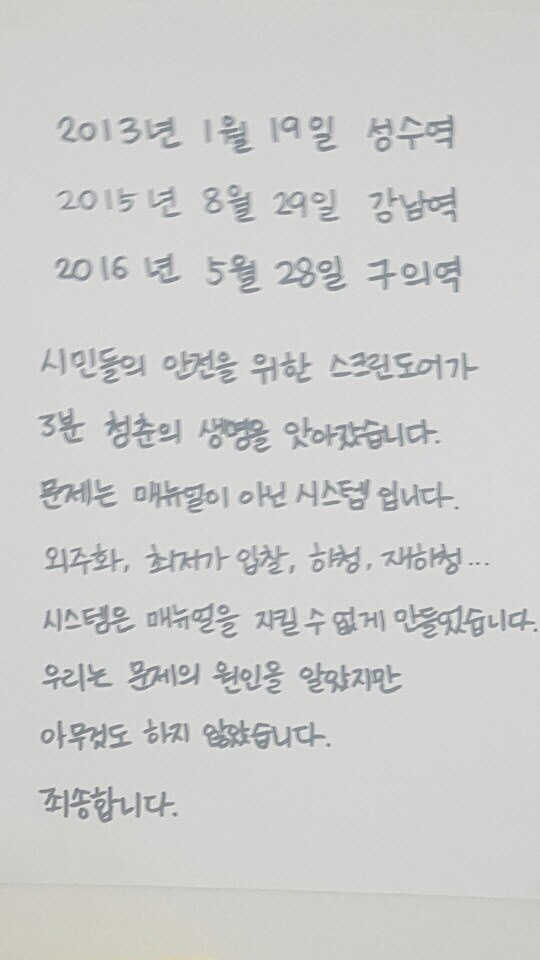 2013년 1월 19일 성수역
2015년 8월 29일 강남역
2016년 5월 28일 구의역
시민들의 안전을 위한 스크린도어가
3분 청춘의 생명을 앗아갔습니다.
문제는 매뉴얼이 아닌 시스템입니다.
외주화, 최저가 입찰, 하청, 재하청...
시스템은 매뉴얼을 지킬 수 없게 만들었습니다.
우리는 문제의 원인을 알았지만
아무것도 하지 않았습니다.
죄송합니다.